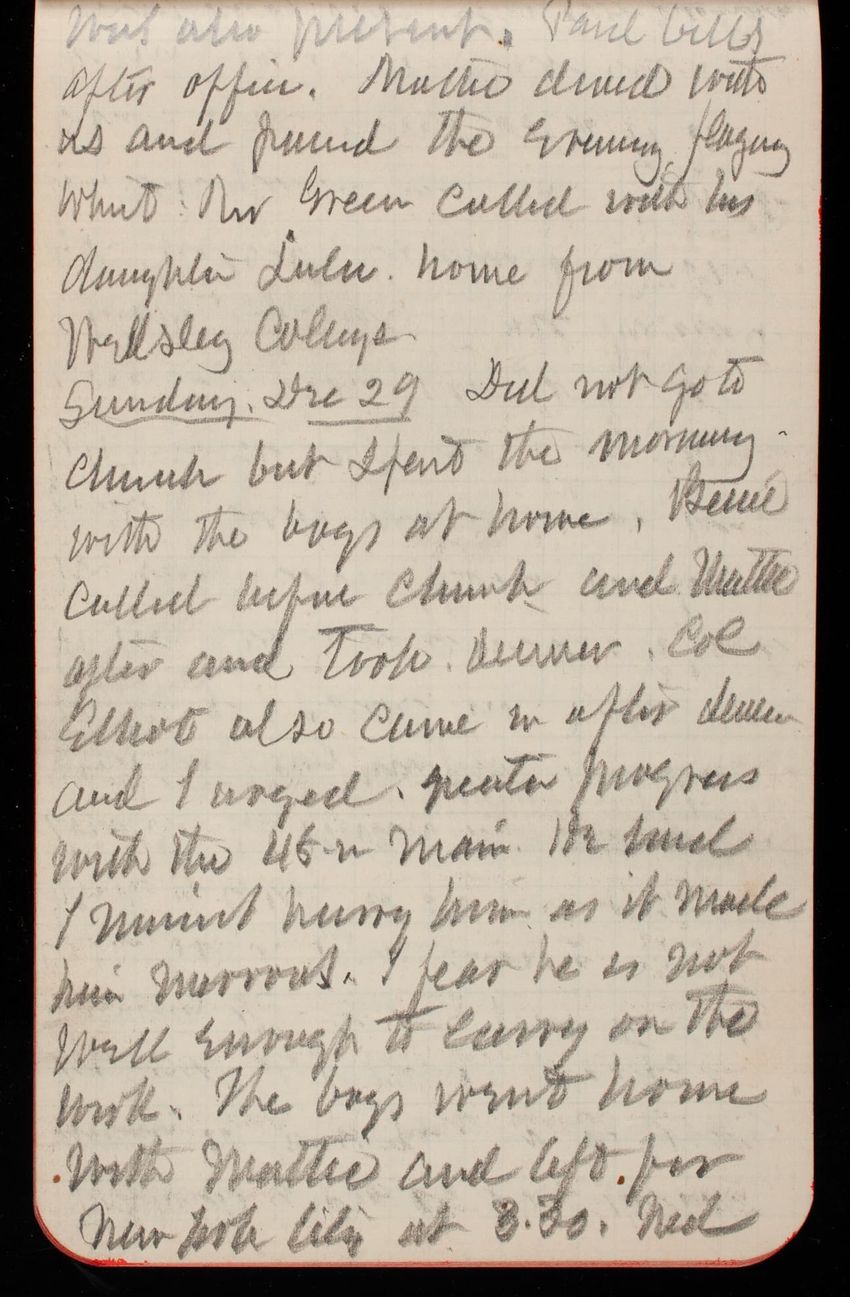 was also present. Paid bills
after office. Mattie dined with
us and found the evening playing
whist. Mr Green called with his
daughter Lulu. home from
Wellsley College
Sunday. Dec 29 Did not go to
church but spent the morning
with the boys at home. Bessie
called before church and Mattie
after and took dinner. Col
Elliot also came in after dinner
and I urged. greater progress
with the 48 in main. He said
I mus'nt hurry him as it made
him nervous. I fear he is not
well enough to carry on the
work. The boys went home
with Mattie and left for
New York City at 3.30. Ned